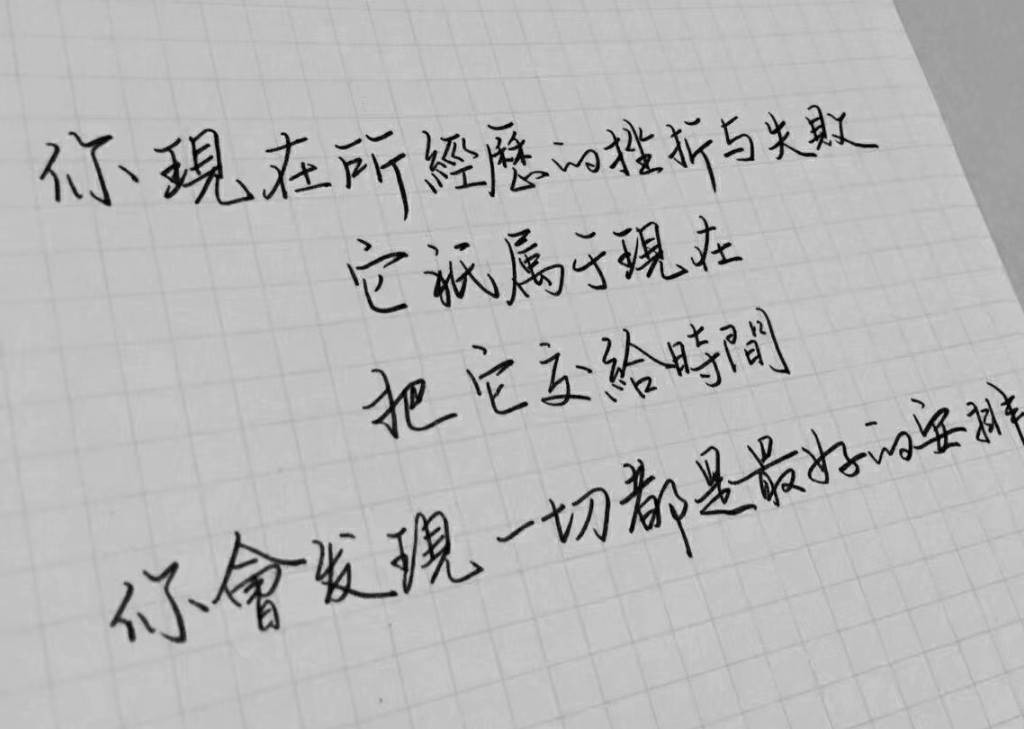 你現在所經歷的挫折与失敗
它衹属于現在
把它交給時間
你會发現一切都是最好的安排